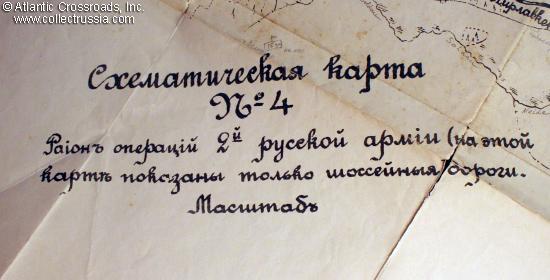 © Atlantic Crossroads, Inc.
www.collectrussia.com
Схематическая карта
№ 4
Раіонъ операцій 2й русской арміи (на этой
картѣ показаны только шоссейныя дороги.
Масштабъ